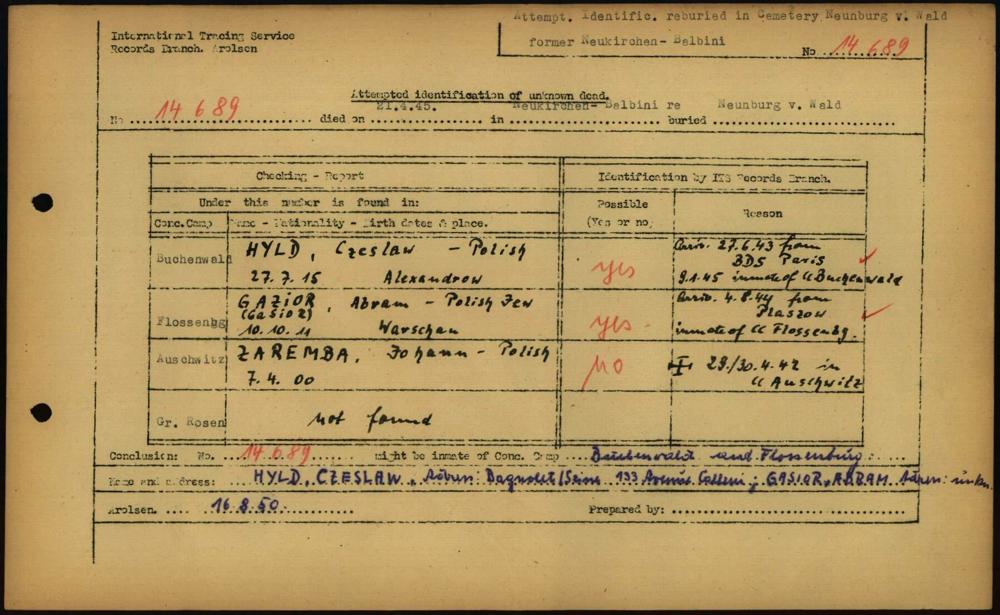 Attempt. Identific. reburied in Cemetery Neunburg v. Wald
International Tracing Service
Records Branch. Arolsen
former Neukirchen- Balbini
No 14689
Attempted identification of unknown dead.
No 14689 died on 21.4.45. in Neukirchen- Balbini re buried Neunburg v. Wald
Checking - Report
Identification by ITS Records Branch.
Under this number is found in:
Possible (Yes or no)
Reason
Conc.Camp
Name - Nationality - Birth dates & place.
Buchenwald
HYLD, Czeslaw - Polish
27. 7. 15 Alexandrow
yes
Arriv. 27.6.43 from
BDS Paris
9.1.45 inmate of CC Buchenwald
Flossenbg
GAZIOR, Abram - Polish Jew
(GASIOR)
10.10.11 Warschau
yes
Arriv. 4.8.44 from
Plaszow
inmate of CC Flossenbg.
Auschwitz
ZAREMBA, Johann - Polish
7. 4. 00
no
29./30.4.42 in
CC Auschwitz
Gr. Rosen
not found
Conclusion: No. 14689 might be inmate of Conc. Camp Buchenwald and Flossenbürg
Name and address: HYLD, CZESLAW, Adress: Bagnolet/Seine 133 Avenue ; GASIOR, ABRAM Adress: unkn.
Arolsen. 16.8.50. Prepared by: